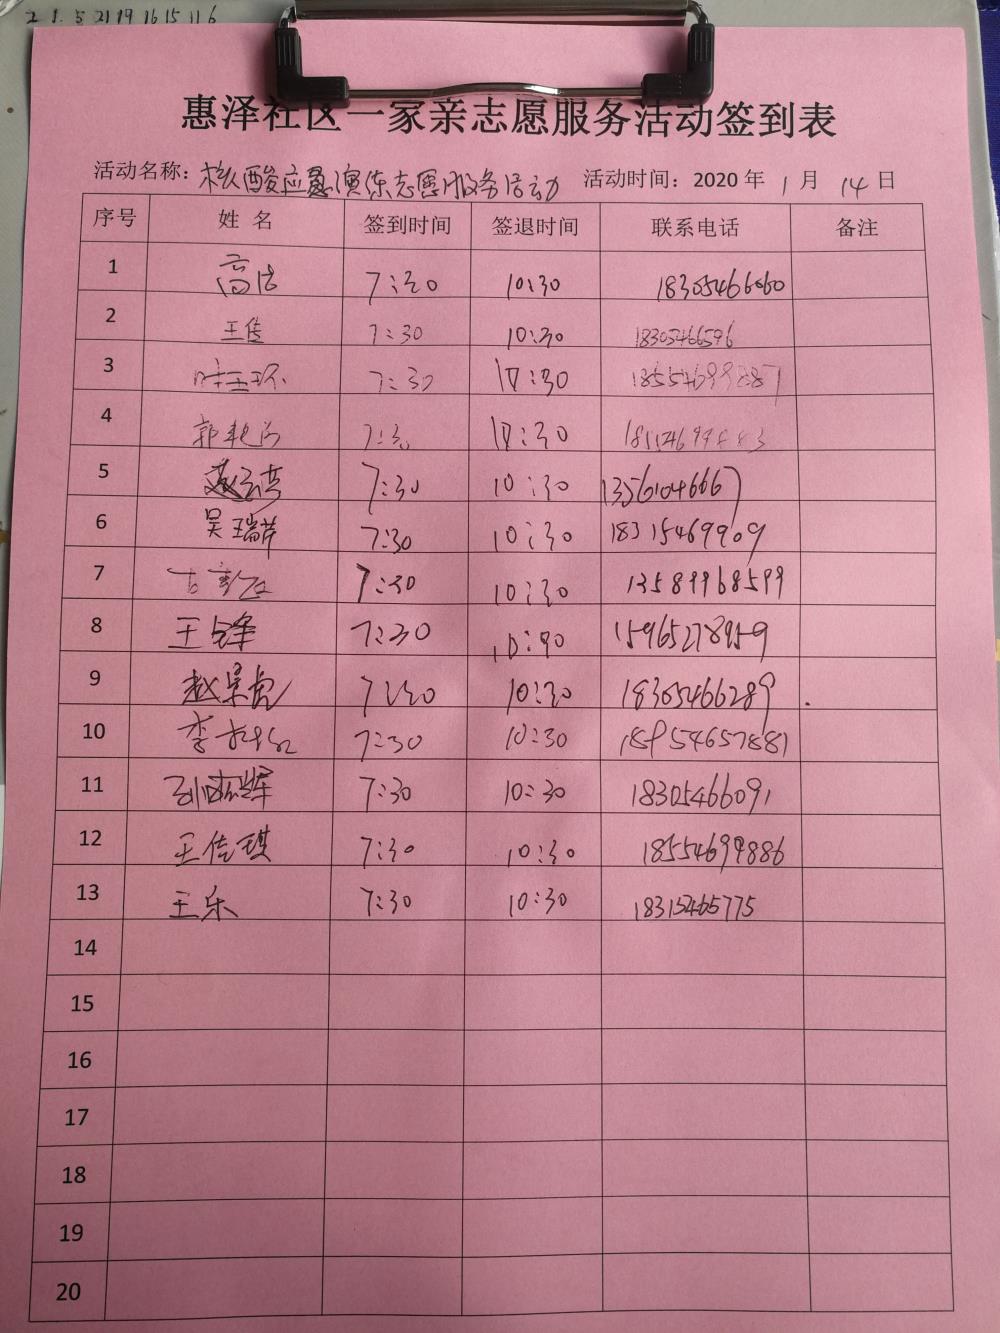 2 1 5 21 19 16 15 11 6
惠泽社区一家亲志愿服务活动签到表
活动名称：核酸应急演练志愿服务活动 活动时间：2020 年 1 月 14 日
序号 姓 名 签到时间 签退时间 联系电话 备注
1 高洁 7:30 10:30 18305466060
2 王倩 7:30 10:30 18305466596
3 叶玉环 7:30 10:30 18554699887
4 7:30 10:30
5 7:30 10:30 13561046667
6 吴瑞芹 7:30 10:30 18315469909
7 7:30 10:30 13589968599
8 王锋 7:30 10:30 15965278959
9 赵景虎 7:30 10:30 18305466289
10 李 7:30 10:30 18954657881
11 7:30 10:30 18305466091
12 王佳琪 7:30 10:30 18554699886
13 王乐 7:30 10:30 18315465775
14
15
16
17
18
19
20